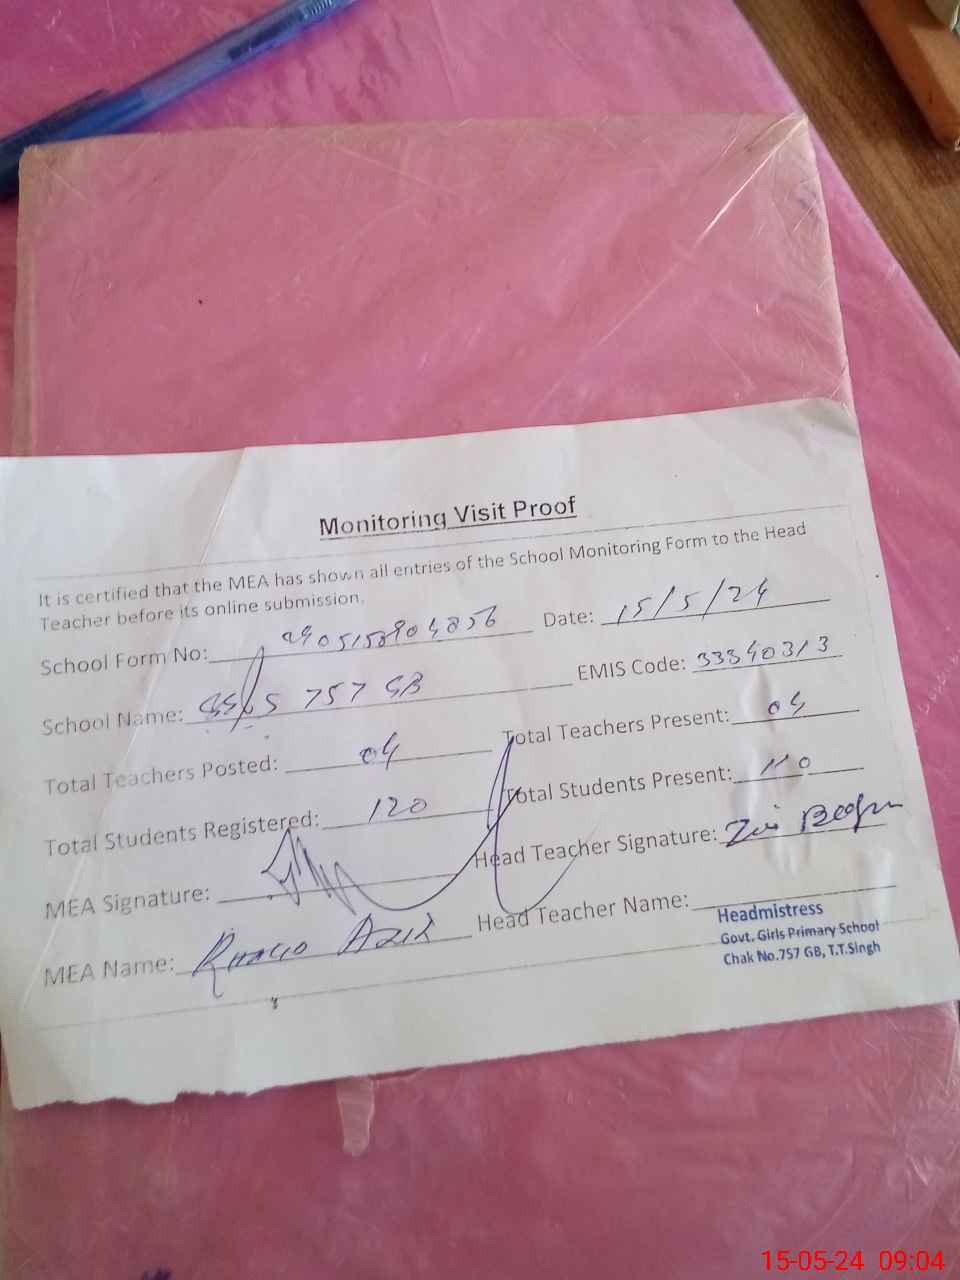 Monitoring Visit Proof
It is certified that the MEA has shown all entries of the School Monitoring Form to the Head
Teacher before its online submission.
School Form No: Date: 15/5/24
School Name: 757 GB EMIS Code: 33340313
Total Teachers Posted: 04 Total Teachers Present: 04
Total Students Registered: 120 Total Students Present: 110
MEA Signature: Head Teacher Signature:
MEA Name: Head Teacher Name:
Headmistress
Govt. Girls Primary School
Chak No.757 GB, T.T.Singh
15-05-24 09:04